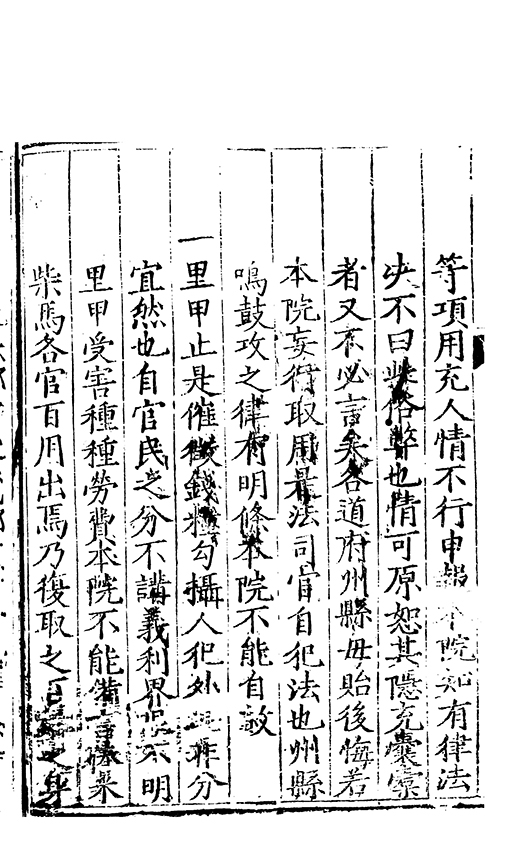 等項用充人情不行申報本院知有律法
决不曰此俗弊也情可原恕其隱充囊橐
者又不必言矣各道府州縣毋貽後悔若
本院妄行取用是法司官自犯法也州縣
鳴鼓攻之律有明條本院不能自赦
一里甲止是催徵錢糧勾攝人犯外非分
宜然也自官民之分不講義利界不明
里甲受害種種勞費本院不能備言
柴馬各官百用出焉乃復取之百之身